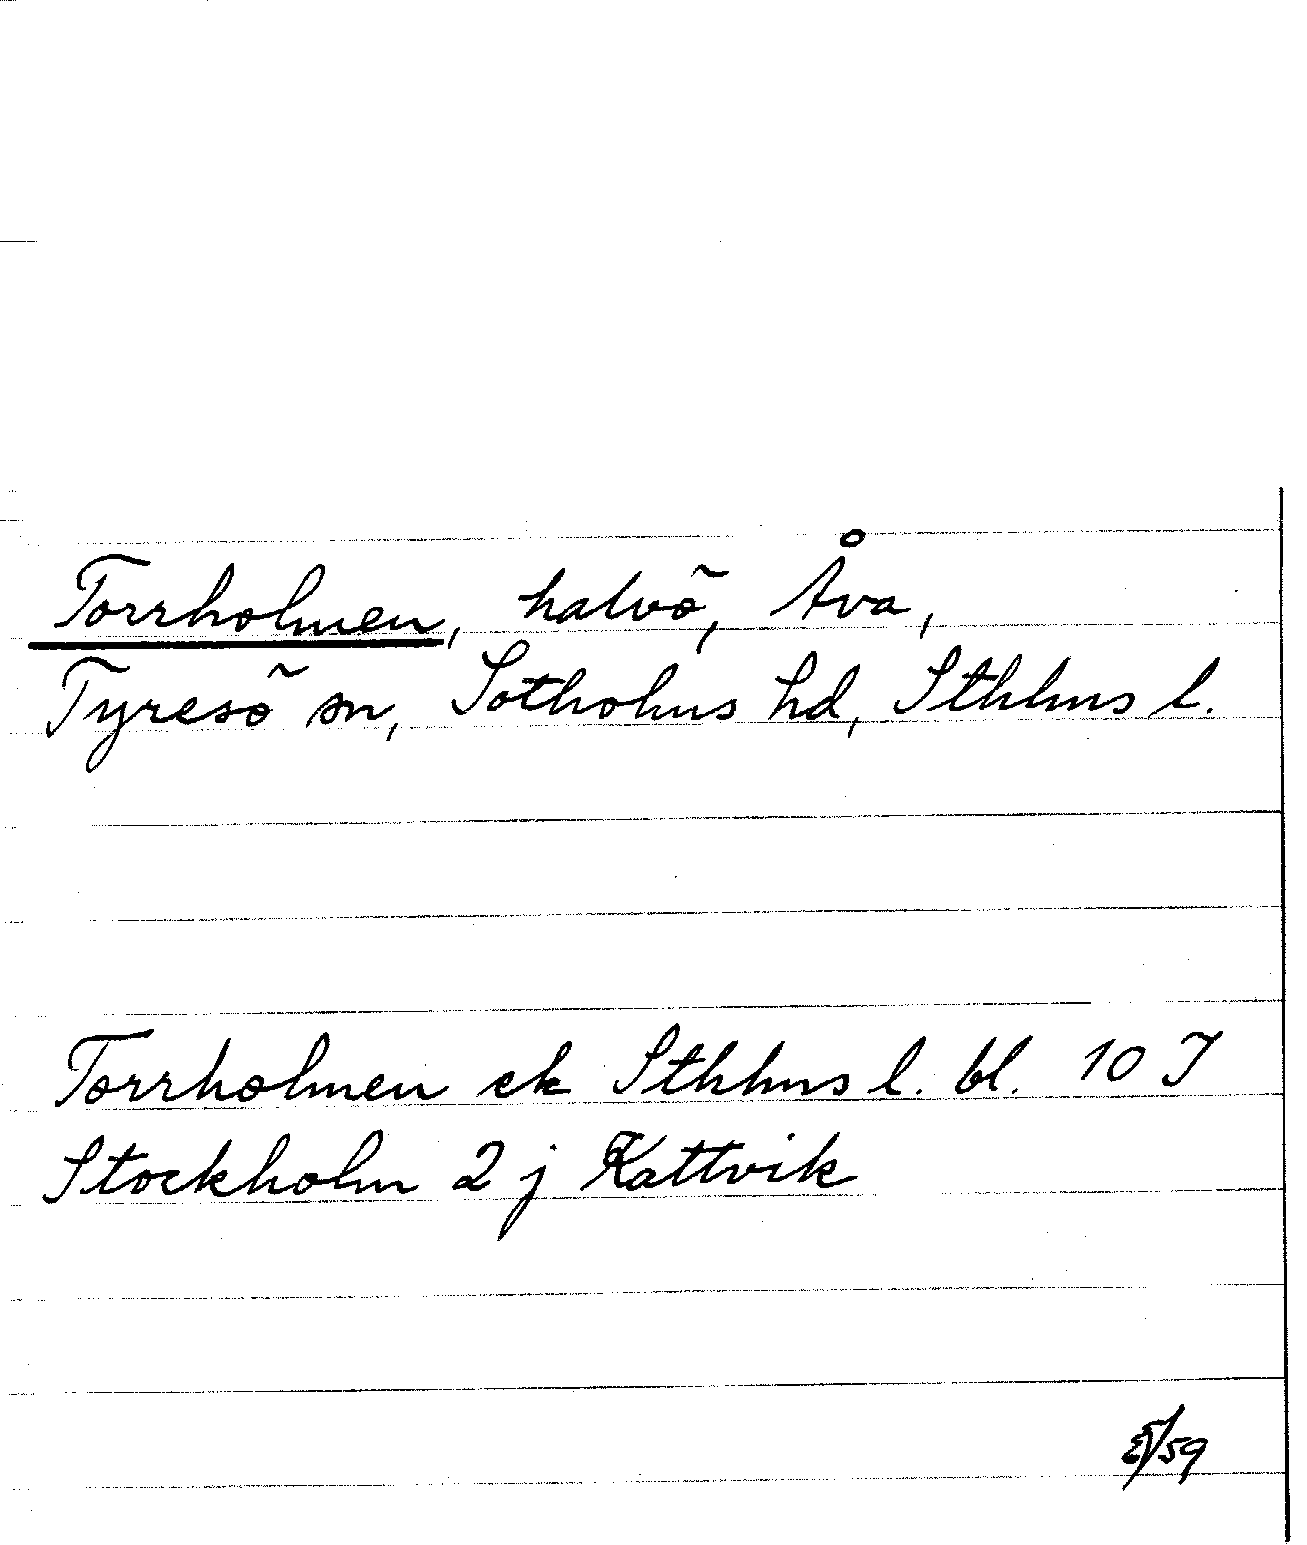 Torrholmen, halvö, Åva,
Tyresö sn, Sotholms hd, Sthlms l.
Torrholmen ek Sthlms l. bl. 10 J
Stockholm 2 j Kattvik
/59